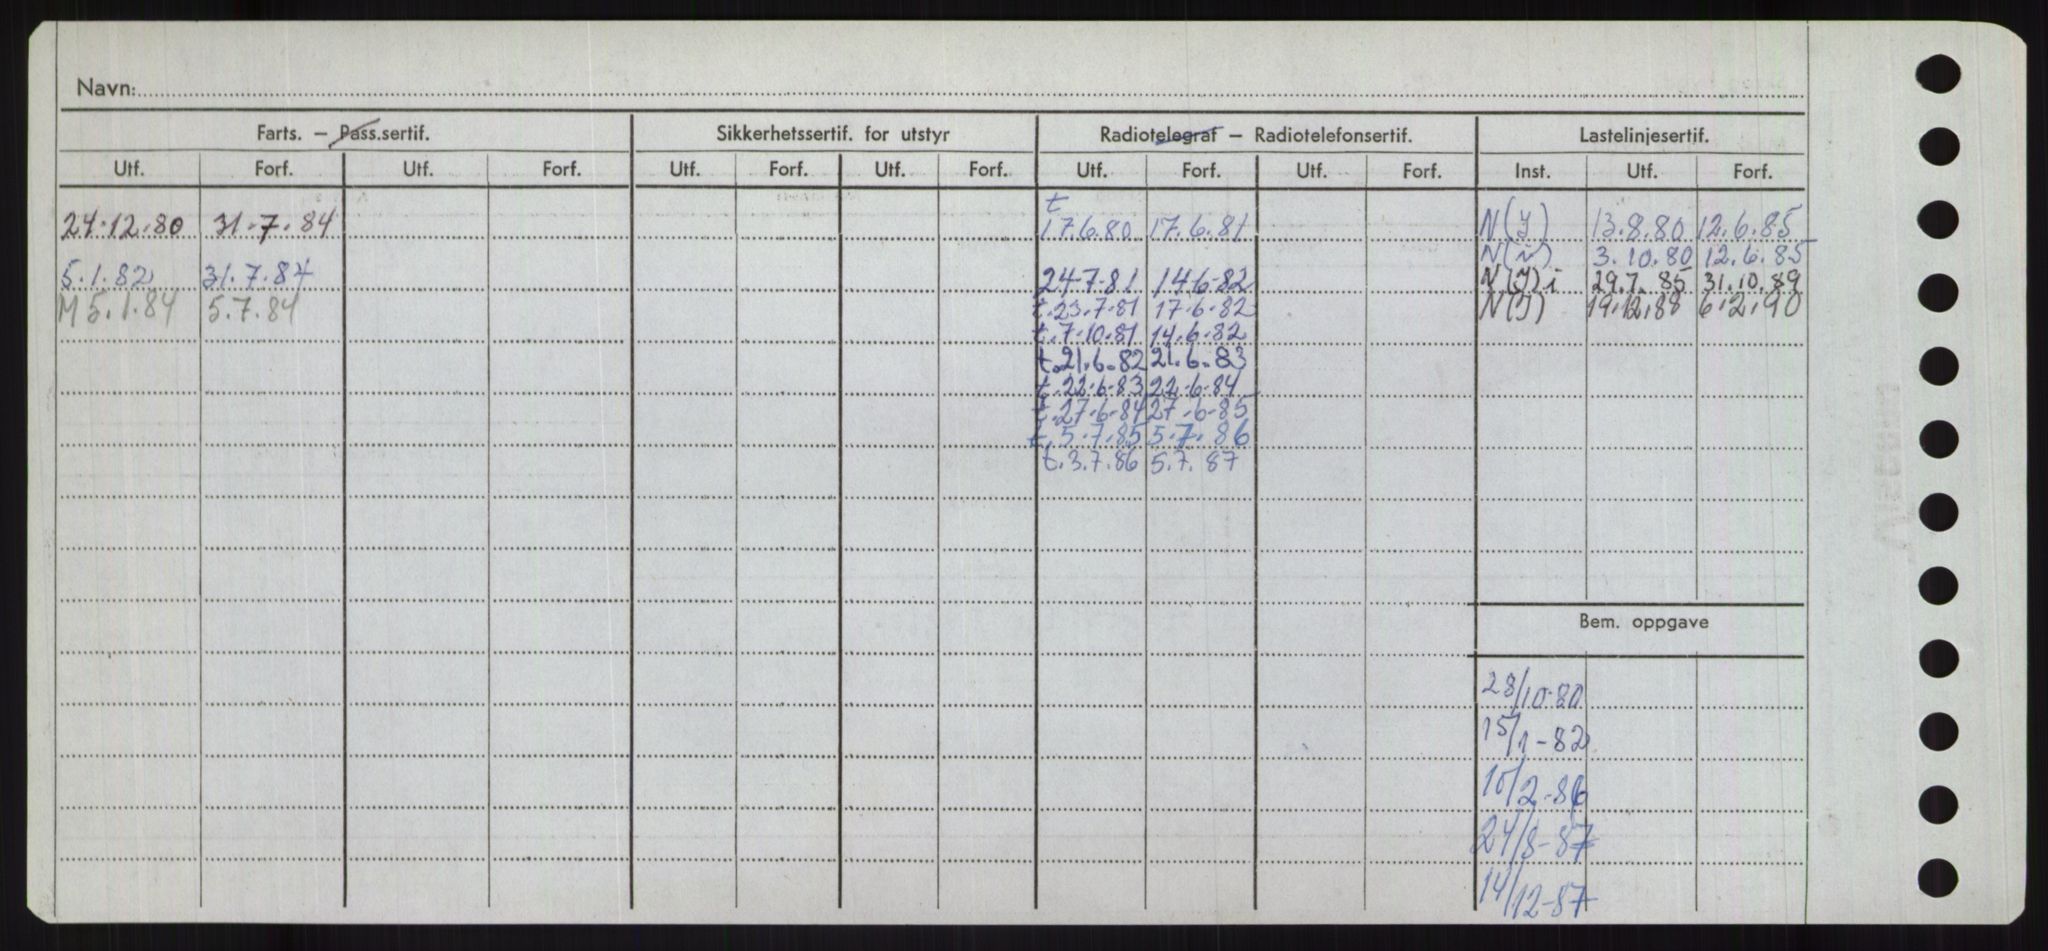 Navn:
Farts. — Pass.sertif. Sikkerhetssertif. for utstyr Radiotelegraf — Radiotelefonsertif. Lastelinjesertif.
Utf. Forf. Utf. Forf. Utf. Forf. Utf. Forf. Utf. Forf. Utf. Forf. Inst. Utf. Forf.
t
24.12.80 31.7.84 17.6.80 17.6.81 N(Y) 13.8.80 12.6.85
N(N) 3.10.80 12.6.85
5.1.82 31.7.84 24-7-81 14-6-82 N(Y)i 29.7.85 31.10.89
M 5.1.84 5.7.84 t.23.7-81 17-6-82 N(Y) 19.12.88 6.2.90
t.7-10.81 14.6-82
t.21.6.82 21.6.83
t.22.6-83 22-6-84
t.27-6-84 27-6-85
t.5.7.85 5.7.86
t.3.7.86 5.7.87
Bem. oppgave
28/10-80
15/1-82
10/2-86
24/8-87
14/12-87